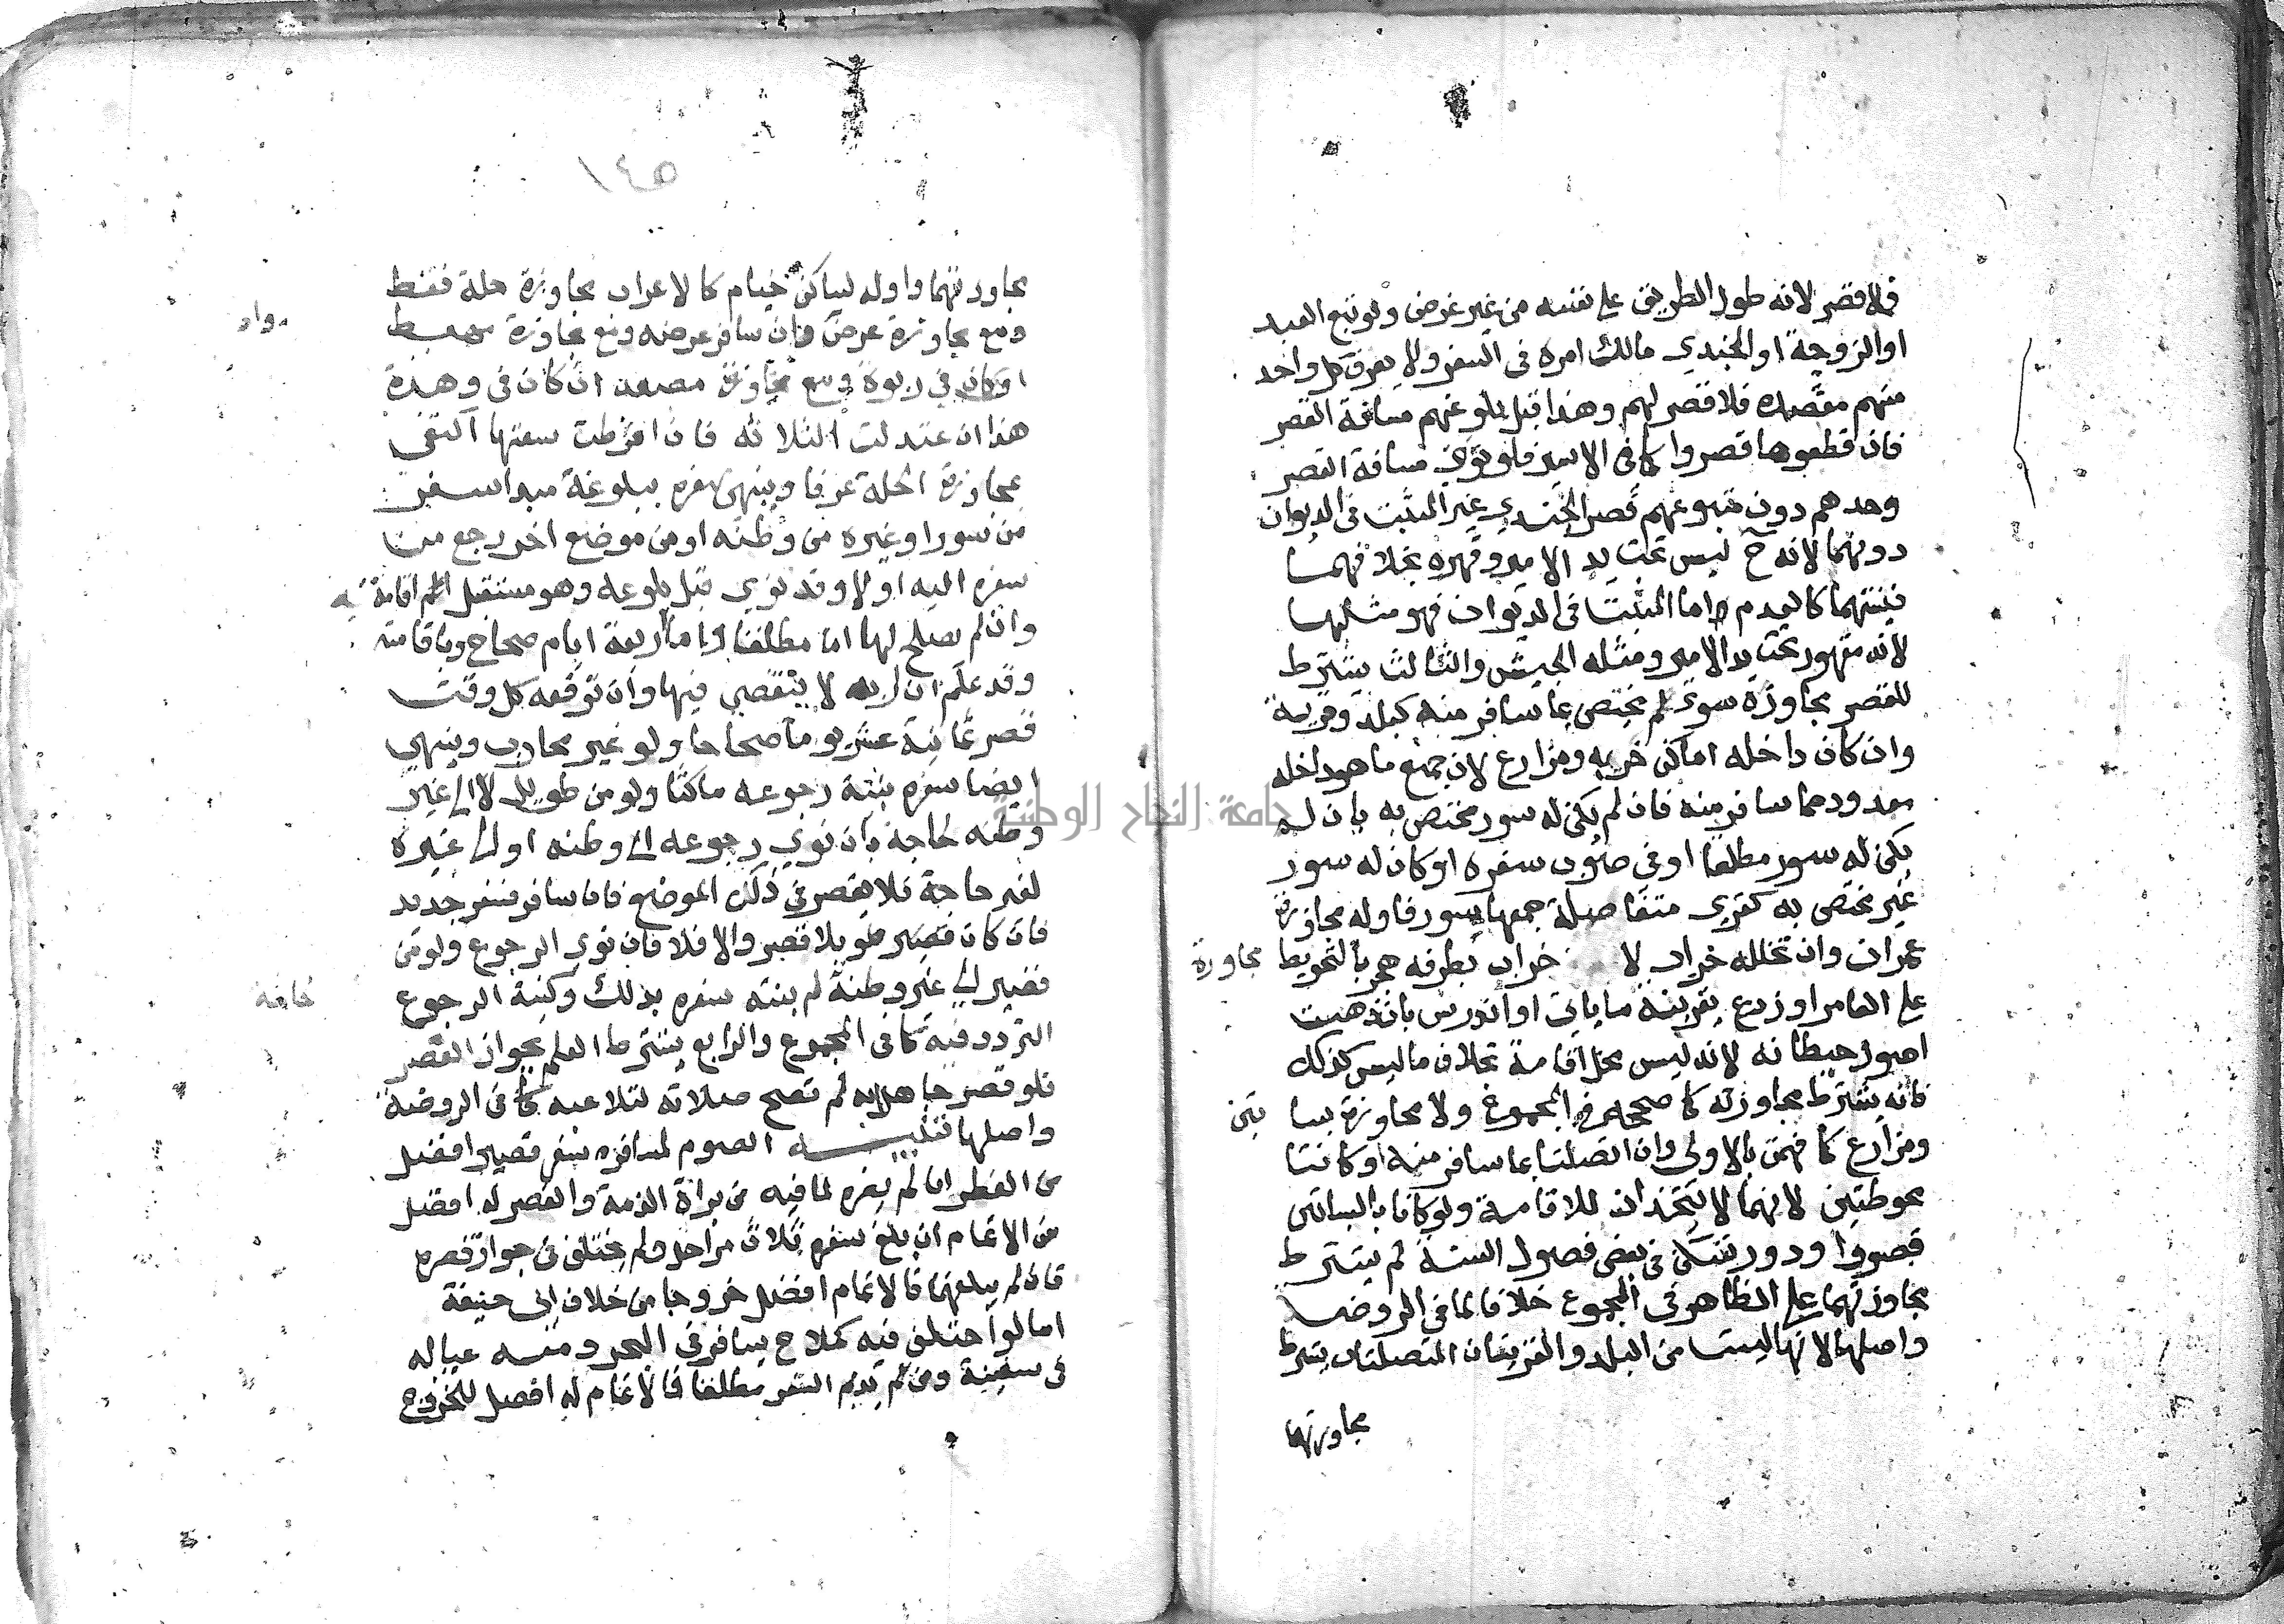 فلا قصر لانه طول الطريق على نفسه من غير غرض ولو تبع العبد
او الزوجة او الجندي مالك امره في السفر ولا يعرف كل واحد
منهم مقصده فلا قصر لهم وهذا قبل بلوغهم مسافة القصر
فان قطعوها قصروا كما في الاسير فلو نووا مسافة القصر
وحدهم دون متبوعهم قصر الجندي غير المثبت في الديوان
دونهما لانه ح ليس تحت يد الامير وقهره بخلافهما
فنيتهما كالعدم واما المثبت في الديوان فهو مثلهما
لانه مقهور تحت يد الامير ومثله الجيش والثالث يشترط
للقصر مجاوزة سور لم يختص بما سافر منه كبلد وقرية
وان كان داخله اماكن خربه ومزارع لان جميع ما هو داخله
معدود مما سافر منه فان لم يكن له سور مختص به بان لم
يكن له سور مطلقا او في صوب سفره او كان له سور
غير مختص به كقرى متفاصلة جمعها سور فاوله مجاوزة
عمران وان تخلله خراب لا خراب بطرفه هجر بالتحويط مجاورة
على العامر او زرع بقرينة ما ياتي او اندرس بان ذهبت
اصول حيطانه لانه ليس محل اقامة بخلاف ما ليس كذلك
فانه يشترط مجاوزته كما صححه في المجموع ولا مجاوزة بسا تين
ومزارع كما فهمت بالاولى وان اتصلتا بما سافر منه او كانتا
محوطتين لانهما لا يتخذان للاقامة ولو كان بالبساتين
قصور او دور تسكن في بعض فصول السنة لم يشترط
مجاوزتهما على الظاهر في المجموع خلافا لما في الروضة
واصلها لانها ليست من البلد والقريتان المتصلتان يشترط
مجاورتهما
١٤٥
مجاورتهما واوله لساكن خيام كالاعراب مجاوزة حلة فقط
ومع مجاوزة عرض وان سافر عرضه ومع مجاوزة مهبط
واد
او كان في ربوة ومع مجاوزة مصعد ان كان في وهدة
هذا ان اعتدلت الثلاثه فان افرطت سعتها اكتفى
بمجاوزة الحلة عرفا وينتهي سفره ببلوغه مبدا سفر
من سور او غيره من وطنه او من موضع اخر رجع من
سفره اليه اولا وقد نوى قبل بلوغه وهو مستقل اقامة به
وان لم يصلح لها اما مطلقا واما اربعة ايام صحاح وباقامته
وقد علم ان اربه لا ينقضي فيها وان توقعه كل وقت
قصر ثمانية عشر يوما صحاحا ولو غير محارب وينتهي
ايضا سفره بنية رجوعه ماكثا ولو من طويل لا الى غير
وطنه لحاجة بان نوى رجوعه الى وطنه او الى غيره
لغير حاجة فلا يقصر في ذلك الموضع فان سافر فسفر جديد
فان كان قصير طويلا قصر والا فلا فان نوى الرجوع ولو من
قصير الى غير وطنه لم ينته سفره بذلك وكنية الرجوع
لحاجة
التردد فيه كما في المجموع والرابع يشترط العلم بجواز القصر
فلو قصر جاهلا به لم تصح صلاته لتلاعبه كما في الروضة
واصلها تنبيه الصوم لمسافر سفر قصير افضل
من الفطر ان لم يضره لما فيه من براة الذمة والقصر له افضل
من الاتمام ان بلغ سفره ثلاث مراحل ولم يختلف في جواز قصره
فان لم يبلغها فالاتمام افضل خروجا من خلاف ابي حنيفة
اما لو اختلف فيه كملاح يسافر في البحر ومعه عياله
في سفينة ومن لم يديم السفر مطلقا فالاتمام له افضل للخروج